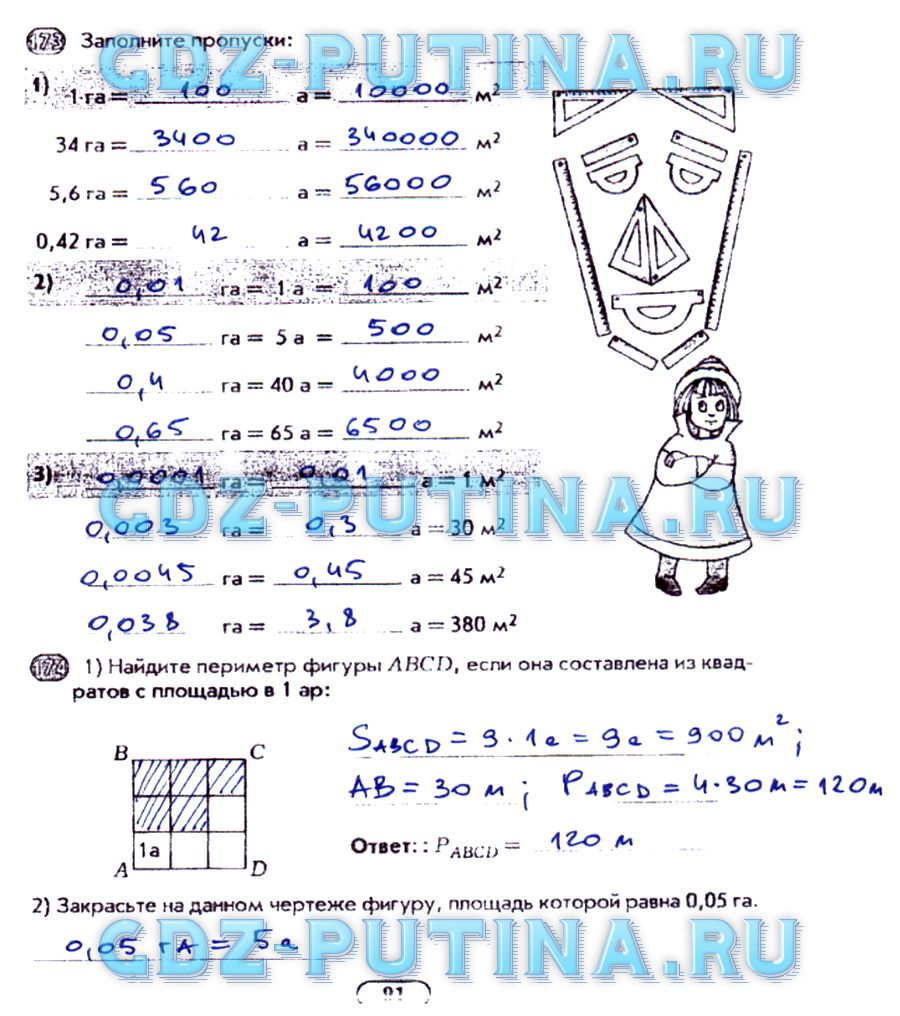 173 Заполните пропуски:
GDZ-PUTINA.RU
1) 1 га = 100 а = 10000 м²
34 га = 3400 а = 340000 м²
5,6 га = 560 а = 56000 м²
0,42 га = 42 а = 4200 м²
2) 0,01 га = 1 а = 100 м²
0,05 га = 5 а = 500 м²
0,4 га = 40 а = 4000 м²
0,65 га = 65 а = 6500 м²
3) 0,0001 га = 0,01 а = 1 м²
GDZ-PUTINA.RU
0,003 га = 0,3 а = 30 м²
0,0045 га = 0,45 а = 45 м²
0,038 га = 3,8 а = 380 м²
174 1) Найдите периметр фигуры ABCD, если она составлена из квад-
ратов с площадью в 1 ар:
S ABCD = 9 · 1а = 9а = 900 м²;
B C
AB = 30 м; P ABCD = 4·30м = 120м
1а
A D
Ответ: : P ABCD = 120 м
2) Закрасьте на данном чертеже фигуру, площадь которой равна 0,05 га.
0,05 га = 5а
GDZ-PUTINA.RU
91